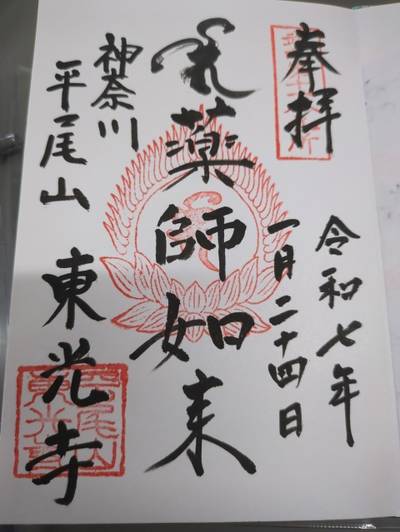 奉拝
令和七年
一月二十四日
薬師如来
神奈川
平尾山
東光寺